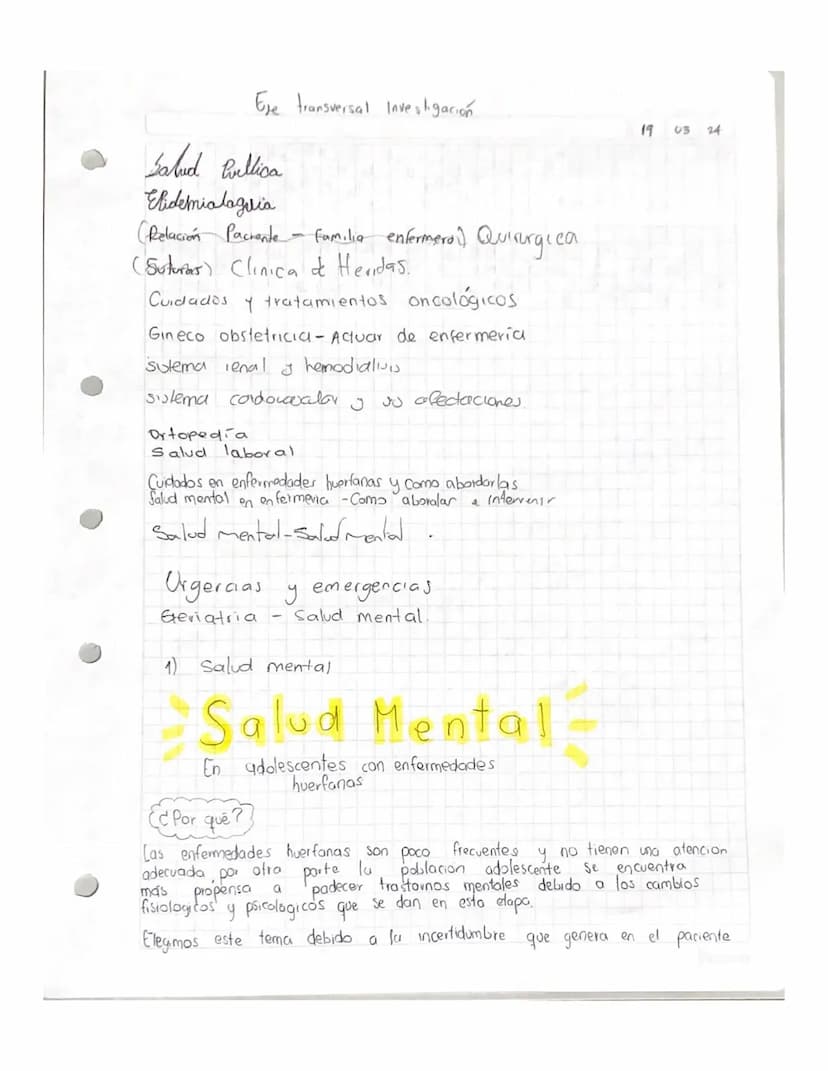 Eje transversal Investigación
19 03 24
Salud Publica
Epidemiologia
(Relación Paciente - Familia enfermero) Quirurgica
(Suturas) Clinica d Heridas.
Cuidados y tratamientos oncológicos
Gineco obstetricia - Actuar de enfermeria
sistema renal y hemodialisis
sistema cardovascular y sus afectaciones
Ortopedía
Salud laboral
Cuidados en enfermedades huerfanas y como abordarlas
Salud mental en enfermeria - Como abordar e intervenir
Salud mental - Salud mental .
Urgencias y emergencias
Geriatria - Salud mental.
1) Salud mental
Salud Mental
En adolescentes con enfermedades
huerfanas
¿Por qué?
Las enfermedades huerfanas son poco frecuentes y no tienen una atencion
adecuada, por otra parte la poblacion adolescente se encuentra
más propensa a padecer trastornos mentales debido a los cambios
fisiologicos y psicologicos que se dan en esta etapa.
Elegimos este tema debido a la incertidumbre que genera en el paciente